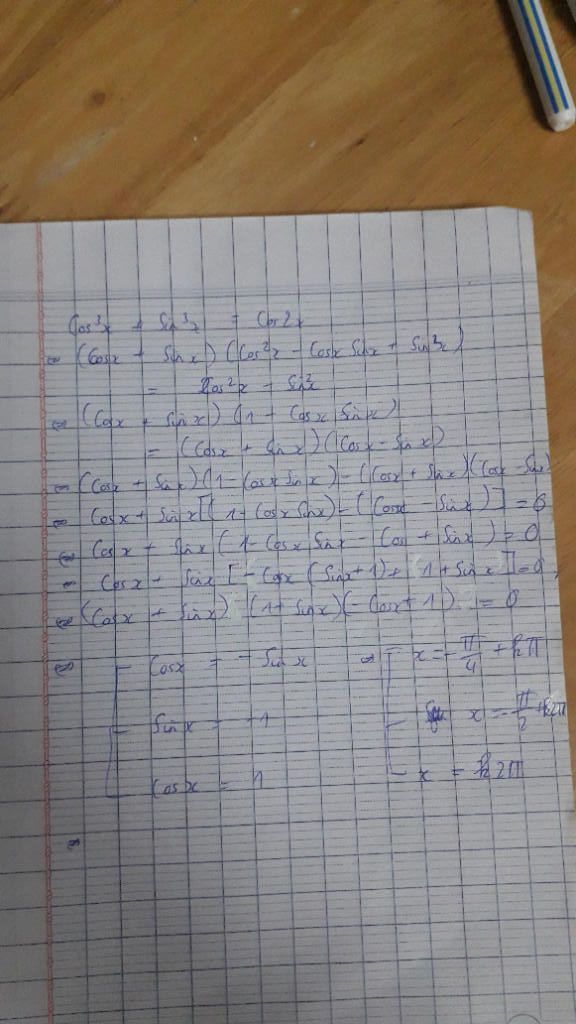 Cos³x + Sin³x = Cos2x
⇔ (Cosx + Sinx) (Cos²x - Cosx Sinx + Sin²x)
= Cos²x - Sin²x
⇔ (Cosx + Sinx) (1 - Cosx Sinx)
= (Cosx + Sinx) (Cosx - Sinx)
⇔ (Cosx + Sinx) (1 - Cosx Sinx) - (Cosx + Sinx)(Cosx - Sinx)
⇔ Cosx + Sinx [(1 - Cosx Sinx) - (Cosx - Sinx)] = 0
⇔ Cosx + Sinx (1 - Cosx Sinx - Cos + Sinx) = 0
⇔ Cosx + Sinx [-Cosx (Sinx + 1) + 1 + Sinx] = 0
⇔ (Cosx + Sinx) (1 + Sinx) (-Cosx + 1) = 0
⇔ [ Cosx = - Sinx ⇔ [ x = -π/4 + kπ
Sinx = -1 x = π/2 + k2π
Cosx = 1 x = k2π
⇔